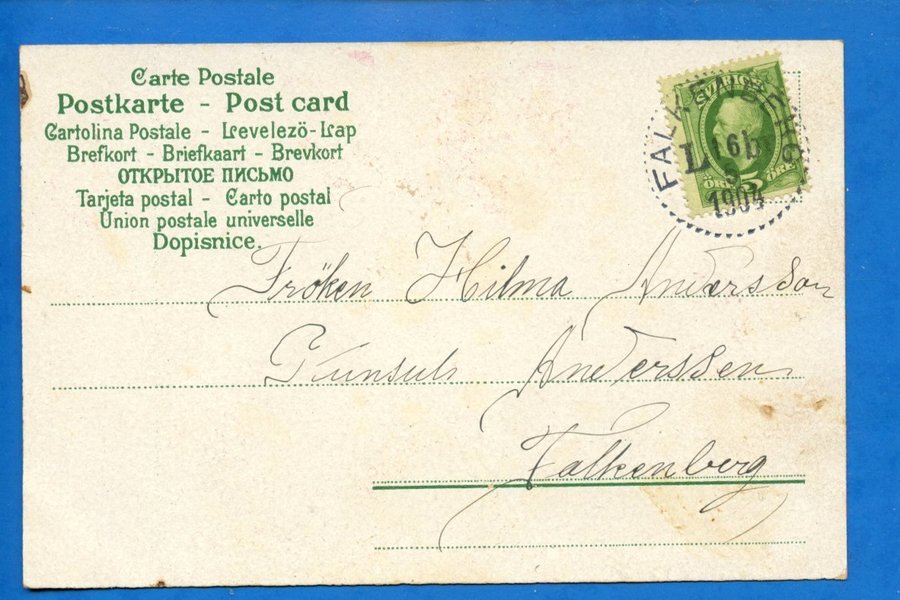 Carte Postale
Postkarte - Post card
Cartolina Postale - Levelező-Lap
Brefkort - Briefkaart - Brevkort
ОТКРЫТОЕ ПИСЬМО
Tarjeta postal - Carto postal
Union postale universelle
Dopisnice.
SVERIGE
5
ÖRE ÖRE
FALKENBERG
L 6 b
1904
Fröken Hilma Andersson
Konsul Anderssen
Falkenberg